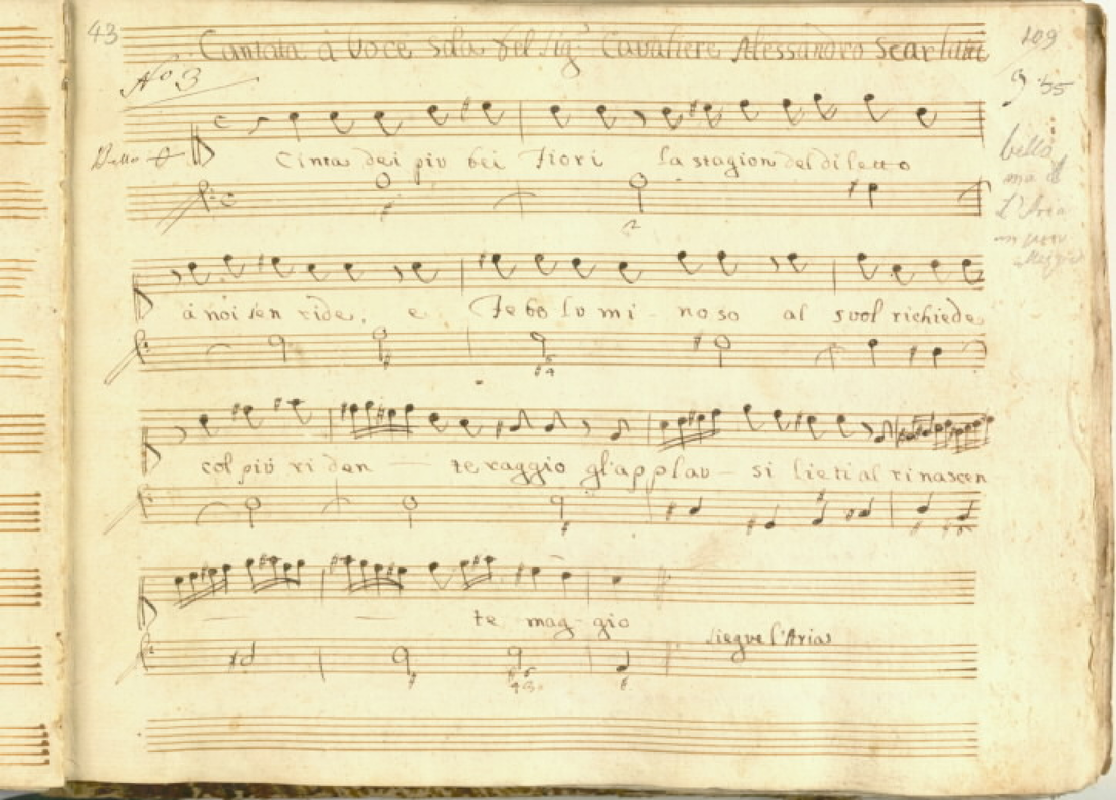 43
Cantata à Voce Sola Del Sig.r Cavaliere Alessandro Scarlatti
109
No 3
Cinta dei piu bei Fiori la stagion del diletto
bella
ma
L'Aria
à noi sen ride; e Febo lu mi - noso al suol richiede
col più ri den — te raggio gl'applau - si lieti al rinascen
— — te mag - gio
siegue l'Aria